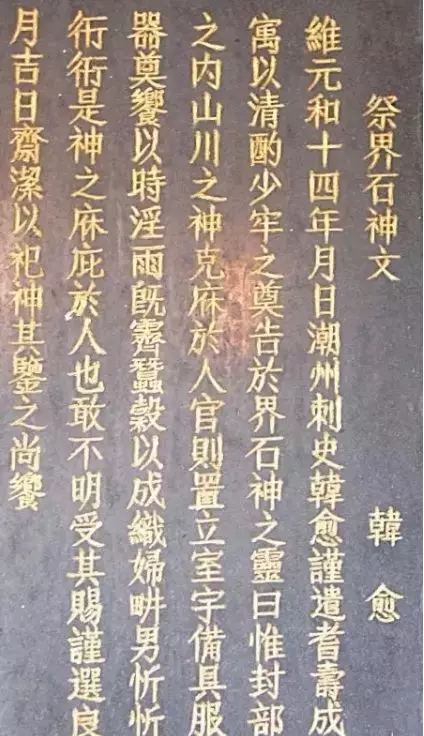 祭界石神文 韓愈
維元和十四年月日潮州刺史韓愈謹遣者壽成
寓以清酌少牢之奠告於界石神之靈曰惟封部
之内山川之神克麻於人官則置立室宇備具服
器奠饗以時淫雨既霽蠶穀以成織婦畊男忻忻
衎衎是神之麻庇於人也敢不明受其賜謹選良
月吉日齋潔以祀神其鑒之尚饗